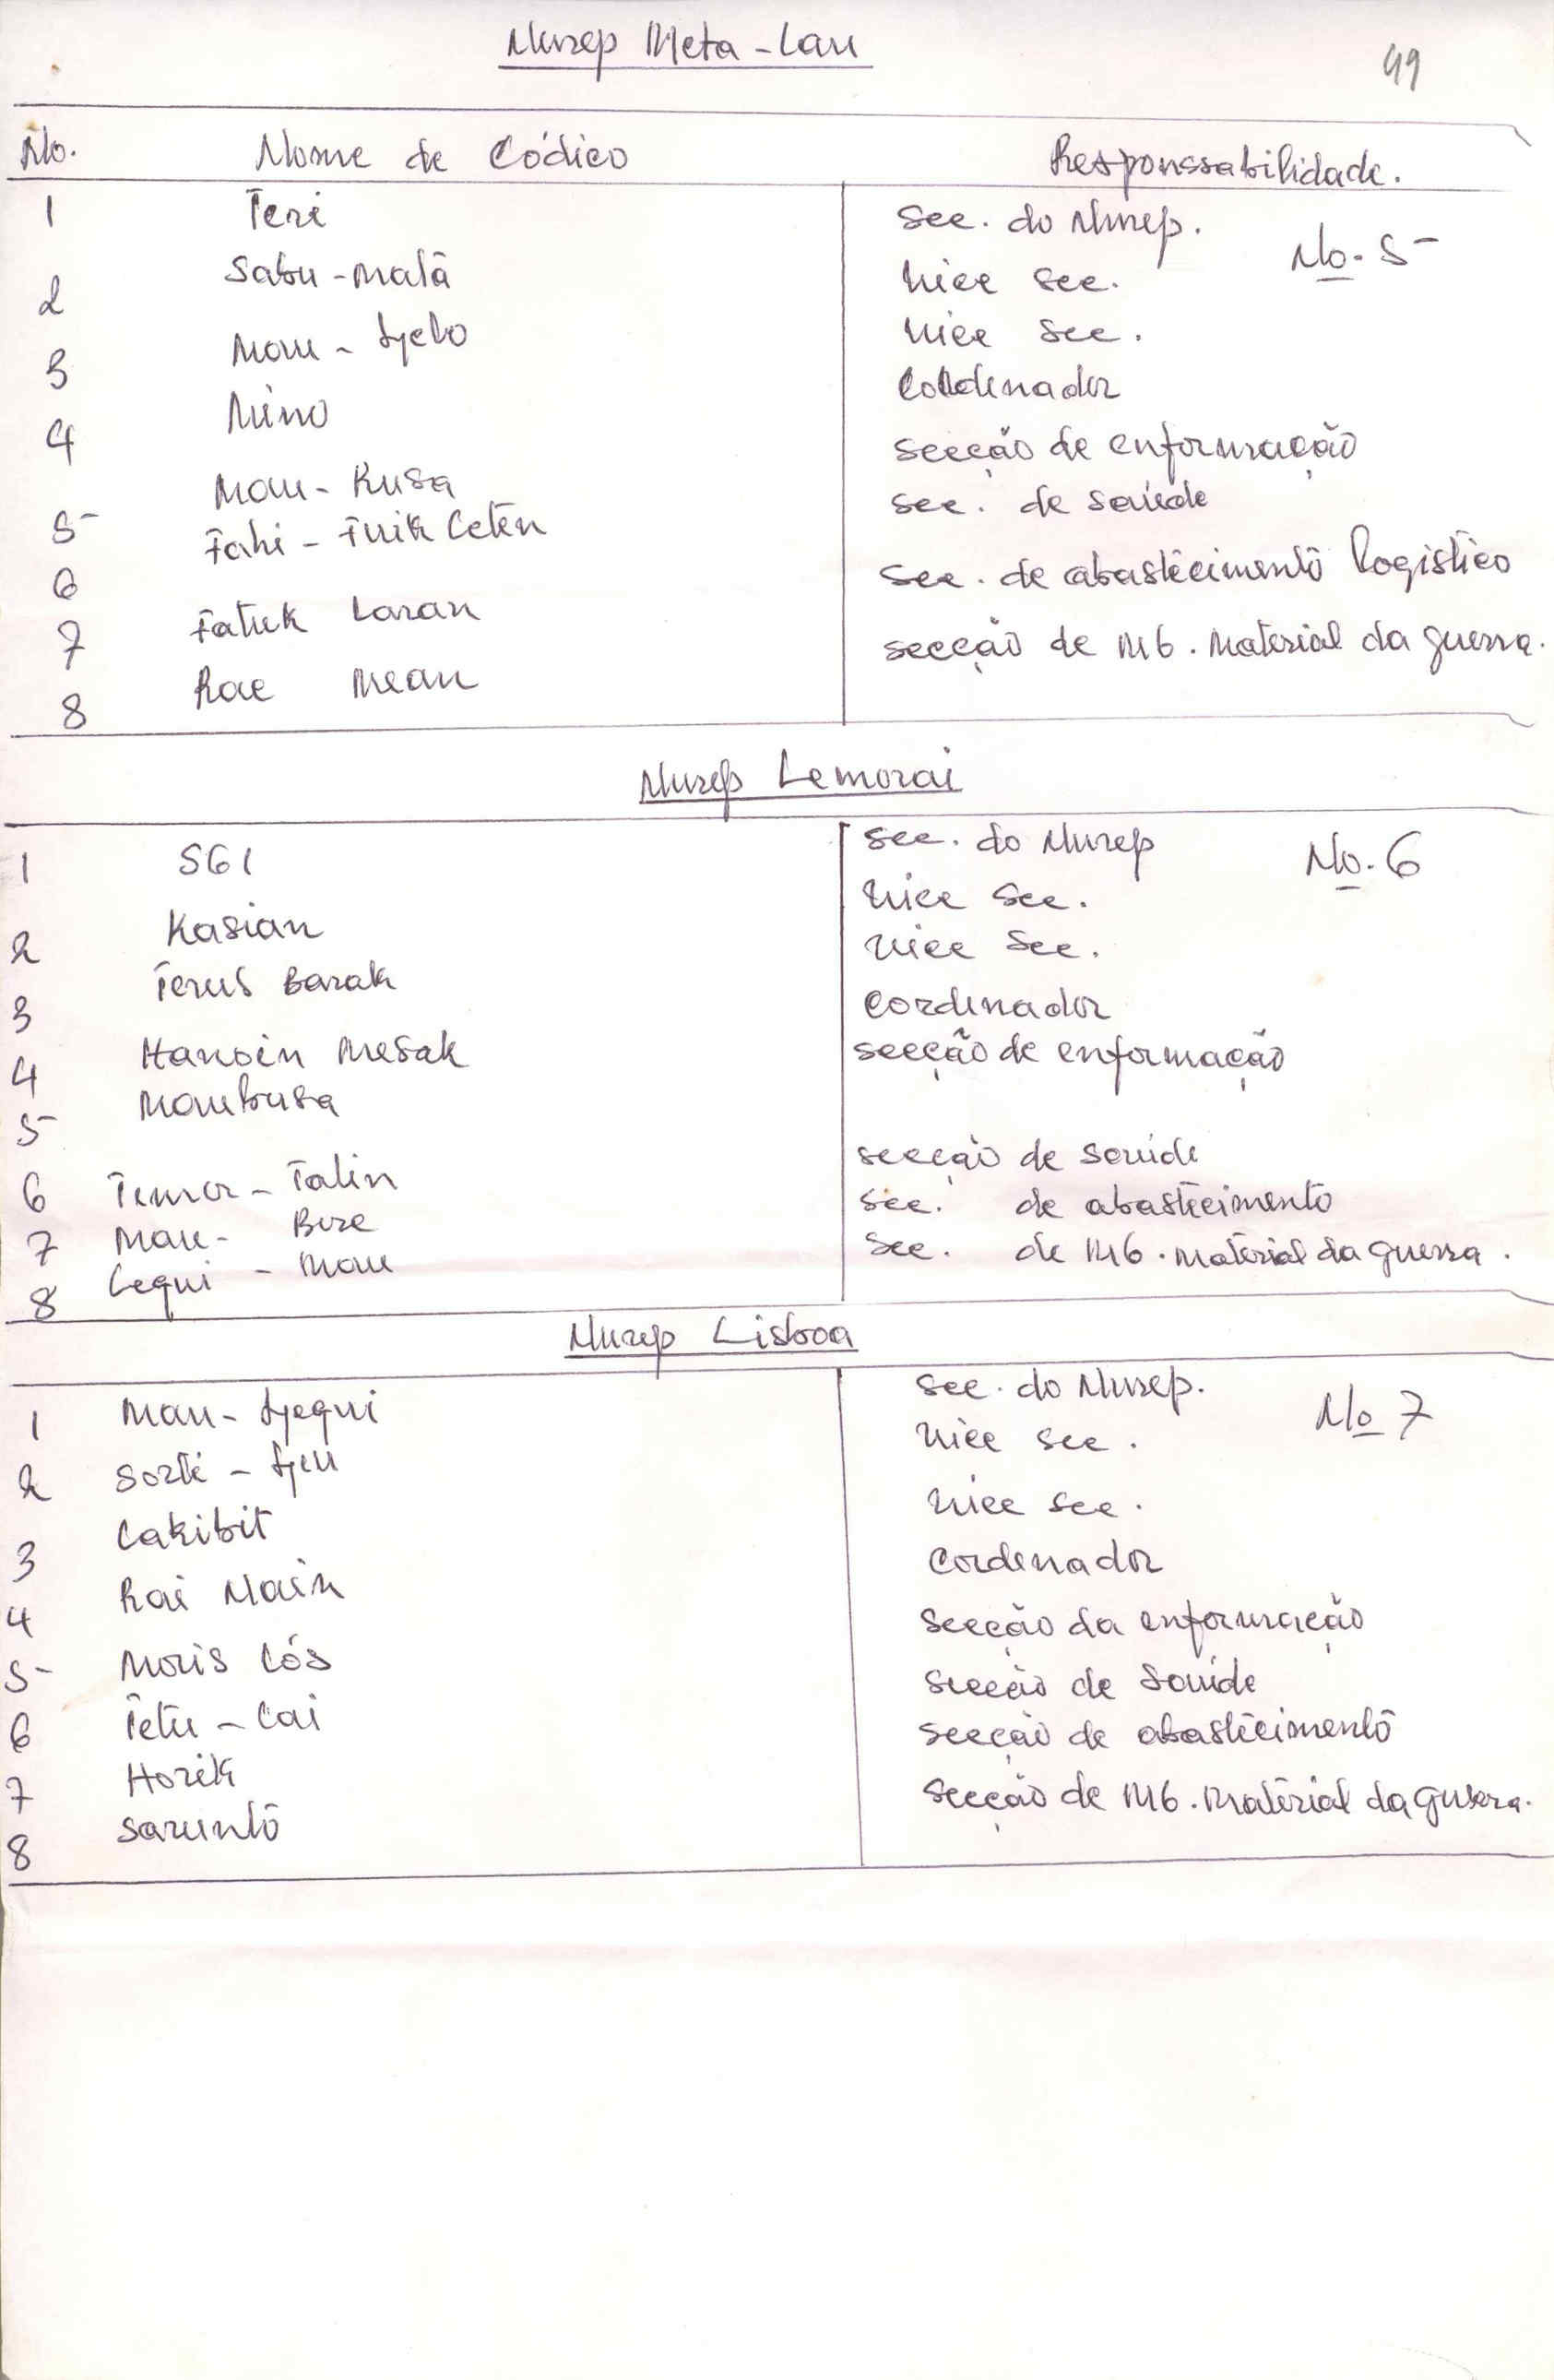 Nurep Meta-Lau
49
No. Nome de Códico Responssabilidade.
1 Teri sec. do Nurep.
No. 5
2 Sabu-matã vice sec.
3 Mau-Djebo vice sec.
4 Nino Cordenador
5 Mau-Kusa secção de enformação
6 Fahi-Fuik Leten sec. de saúde
7 Fatuk Laran sec. de abastecimento logistico
8 Rae Mean secção de M6. Material da guerra.
Nurep Lemorai
1 S61 sec. do Nurep
No. 6
2 Kasian vice sec.
3 Terus Barak vice sec.
4 Hanoin Mesak Cordenador
5 Maubusa secção de enformação
6 Timor-Talin secção de saúde
7 Mau-Bere sec. de abastecimento
8 Lequi-Mau sec. de M6. material da guerra.
Nurep Lisboa
1 Mau-Djequi sec. do Nurep.
No 7
2 Sorti-Djeu vice sec.
3 Lakibit vice sec.
4 Rai Nain Cordenador
5 Moris Lós secção da enformação
6 Tetu-Lai secção de saúde
7 Horik secção de abastecimento
8 Sarunto secção de M6. material da guerra.